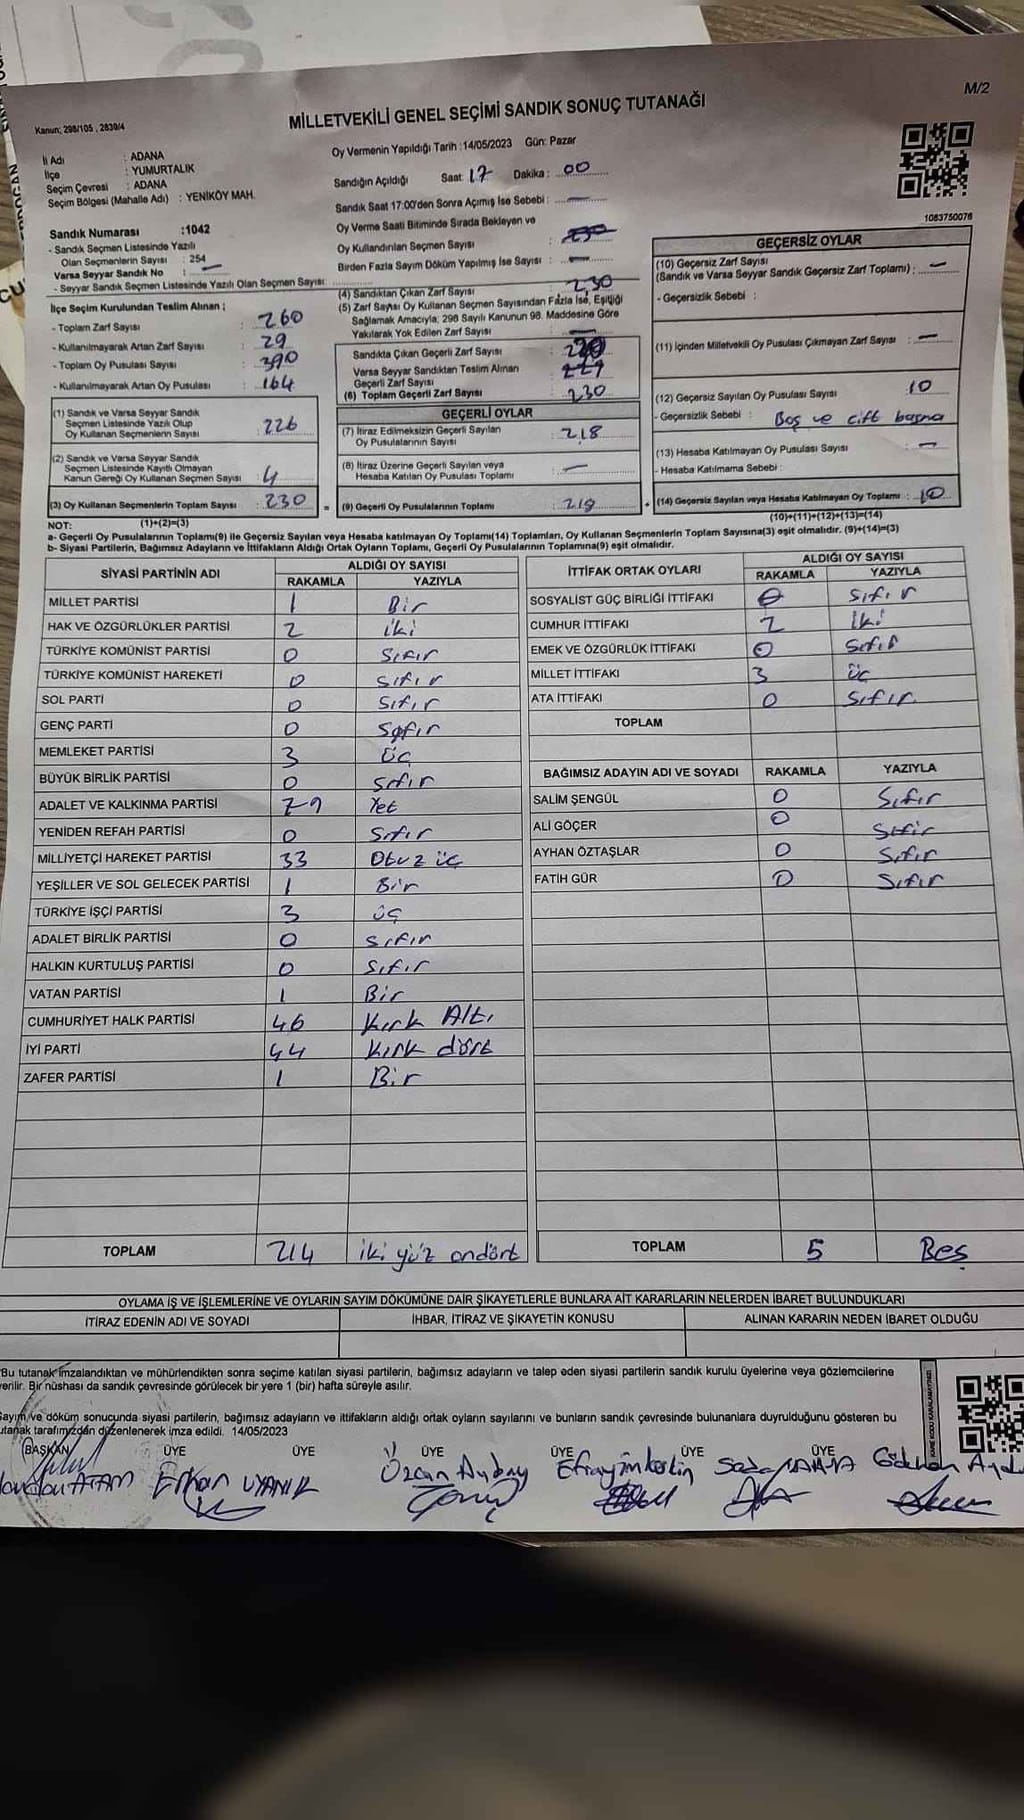 M/2
Kanun; 298/105 , 2839/4
MİLLETVEKİLİ GENEL SEÇİMİ SANDIK SONUÇ TUTANAĞI
İl Adı : ADANA
İlçe : YUMURTALIK
Seçim Çevresi : ADANA
Seçim Bölgesi (Mahalle Adı) : YENİKÖY MAH.
Oy Vermenin Yapıldığı Tarih :14/05/2023 Gün: Pazar
Sandığın Açıldığı Saat: 17 Dakika : 00
Sandık Saat 17:00'den Sonra Açımış İse Sebebi : —
Oy Verme Saati Bitiminde Sırada Bekleyen ve
Oy Kullandırılan Seçmen Sayısı :
Birden Fazla Sayım Döküm Yapılmış İse Sayısı : —
1083750076
Sandık Numarası :1042
- Sandık Seçmen Listesinde Yazılı
Olan Seçmenlerin Sayısı : 254
Varsa Seyyar Sandık No : —
- Seyyar Sandık Seçmen Listesinde Yazılı Olan Seçmen Sayısı:
İlçe Seçim Kurulundan Teslim Alınan ;
- Toplam Zarf Sayısı : 260
- Kullanılmayarak Artan Zarf Sayısı : 29
- Toplam Oy Pusulası Sayısı : 390
- Kullanılmayarak Artan Oy Pusulası : 164
(1) Sandık ve Varsa Seyyar Sandık
Seçmen Listesinde Yazılı Olup
Oy Kullanan Seçmenlerin Sayısı : 226
(2) Sandık ve Varsa Seyyar Sandık
Seçmen Listesinde Kayıtlı Olmayan
Kanun Gereği Oy Kullanan Seçmen Sayısı : 4
(3) Oy Kullanan Seçmenlerin Toplam Sayısı : 230
(4) Sandıktan Çıkan Zarf Sayısı : 230
(5) Zarf Sayısı Oy Kullanan Seçmen Sayısından Fazla İse, Eşitliği
Sağlamak Amacıyla; 298 Sayılı Kanunun 98. Maddesine Göre
Yakılarak Yok Edilen Zarf Sayısı : —
Sandıkta Çıkan Geçerli Zarf Sayısı :
Varsa Seyyar Sandıktan Teslim Alınan
Geçerli Zarf Sayısı : 229
(6) Toplam Geçerli Zarf Sayısı : 230
GEÇERLİ OYLAR
(7) İtiraz Edilmeksizin Geçerli Sayılan
Oy Pusulalarının Sayısı : 218
(8) İtiraz Üzerine Geçerli Sayılan veya
Hesaba Katılan Oy Pusulası Toplamı : —
= (9) Geçerli Oy Pusulalarının Toplamı : 219
GEÇERSİZ OYLAR
(10) Geçersiz Zarf Sayısı
(Sandık ve Varsa Seyyar Sandık Geçersiz Zarf Toplamı) : —
- Geçersizlik Sebebi :
(11) İçinden Milletvekili Oy Pusulası Çıkmayan Zarf Sayısı : —
(12) Geçersiz Sayılan Oy Pusulası Sayısı : 10
- Geçersizlik Sebebi : Boş ve çift basma
(13) Hesaba Katılmayan Oy Pusulası Sayısı : —
- Hesaba Katılmama Sebebi :
+ (14) Geçersiz Sayılan veya Hesaba Katılmayan Oy Toplamı : 10
NOT: (1)+(2)=(3)
(10)+(11)+(12)+(13)=(14)
a- Geçerli Oy Pusulalarının Toplamı(9) ile Geçersiz Sayılan veya Hesaba katılmayan Oy Toplamı(14) Toplamları, Oy Kullanan Seçmenlerin Toplam Sayısına(3) eşit olmalıdır. (9)+(14)=(3)
b- Siyasi Partilerin, Bağımsız Adayların ve İttifakların Aldığı Ortak Oyların Toplamı, Geçerli Oy Pusulalarının Toplamına(9) eşit olmalıdır.
SİYASİ PARTİNİN ADI ALDIĞI OY SAYISI
RAKAMLA YAZIYLA
MİLLET PARTİSİ 1 Bir
HAK VE ÖZGÜRLÜKLER PARTİSİ 2 iki
TÜRKİYE KOMÜNİST PARTİSİ 0 Sıfır
TÜRKİYE KOMÜNİST HAREKETİ 0 Sıfır
SOL PARTİ 0 Sıfır
GENÇ PARTİ 0 Sıfır
MEMLEKET PARTİSİ 3 üç
BÜYÜK BİRLİK PARTİSİ 0 Sıfır
ADALET VE KALKINMA PARTİSİ 79 Yet
YENİDEN REFAH PARTİSİ 0 Sıfır
MİLLİYETÇİ HAREKET PARTİSİ 33 Otuz üç
YEŞİLLER VE SOL GELECEK PARTİSİ 1 Bir
TÜRKİYE İŞÇİ PARTİSİ 3 üç
ADALET BİRLİK PARTİSİ 0 Sıfır
HALKIN KURTULUŞ PARTİSİ 0 Sıfır
VATAN PARTİSİ 1 Bir
CUMHURİYET HALK PARTİSİ 46 Kırk Altı
İYİ PARTİ 44 Kırk dört
ZAFER PARTİSİ 1 Bir
TOPLAM 214 iki yüz ondört
İTTİFAK ORTAK OYLARI ALDIĞI OY SAYISI
RAKAMLA YAZIYLA
SOSYALİST GÜÇ BİRLİĞİ İTTİFAKI 0 Sıfır
CUMHUR İTTİFAKI 2 İki
EMEK VE ÖZGÜRLÜK İTTİFAKI 0 Sıfır
MİLLET İTTİFAKI 3 üç
ATA İTTİFAKI 0 Sıfır
TOPLAM
BAĞIMSIZ ADAYIN ADI VE SOYADI RAKAMLA YAZIYLA
SALİM ŞENGÜL 0 Sıfır
ALİ GÖÇER 0 Sıfır
AYHAN ÖZTAŞLAR 0 Sıfır
FATİH GÜR 0 Sıfır
TOPLAM 5 Beş
OYLAMA İŞ VE İŞLEMLERİNE VE OYLARIN SAYIM DÖKÜMÜNE DAİR ŞİKAYETLERLE BUNLARA AİT KARARLARIN NELERDEN İBARET BULUNDUKLARI
İTİRAZ EDENİN ADI VE SOYADI İHBAR, İTİRAZ VE ŞİKAYETİN KONUSU ALINAN KARARIN NEDEN İBARET OLDUĞU
Bu tutanak imzalandıktan ve mühürlendikten sonra seçime katılan siyasi partilerin, bağımsız adayların ve talep eden siyasi partilerin sandık kurulu üyelerine veya gözlemcilerine
verilir. Bir nüshası da sandık çevresinde görülecek bir yere 1 (bir) hafta süreyle asılır.
Sayım ve döküm sonucunda siyasi partilerin, bağımsız adayların ve ittifakların aldığı ortak oyların sayılarını ve bunların sandık çevresinde bulunanlara duyrulduğunu gösteren bu
tutanak tarafımızdan düzenlenerek imza edildi. 14/05/2023
BAŞKAN ÜYE ÜYE ÜYE ÜYE ÜYE ÜYE
ATAM Erhan UYANIK Özcan Aybay Gökhan